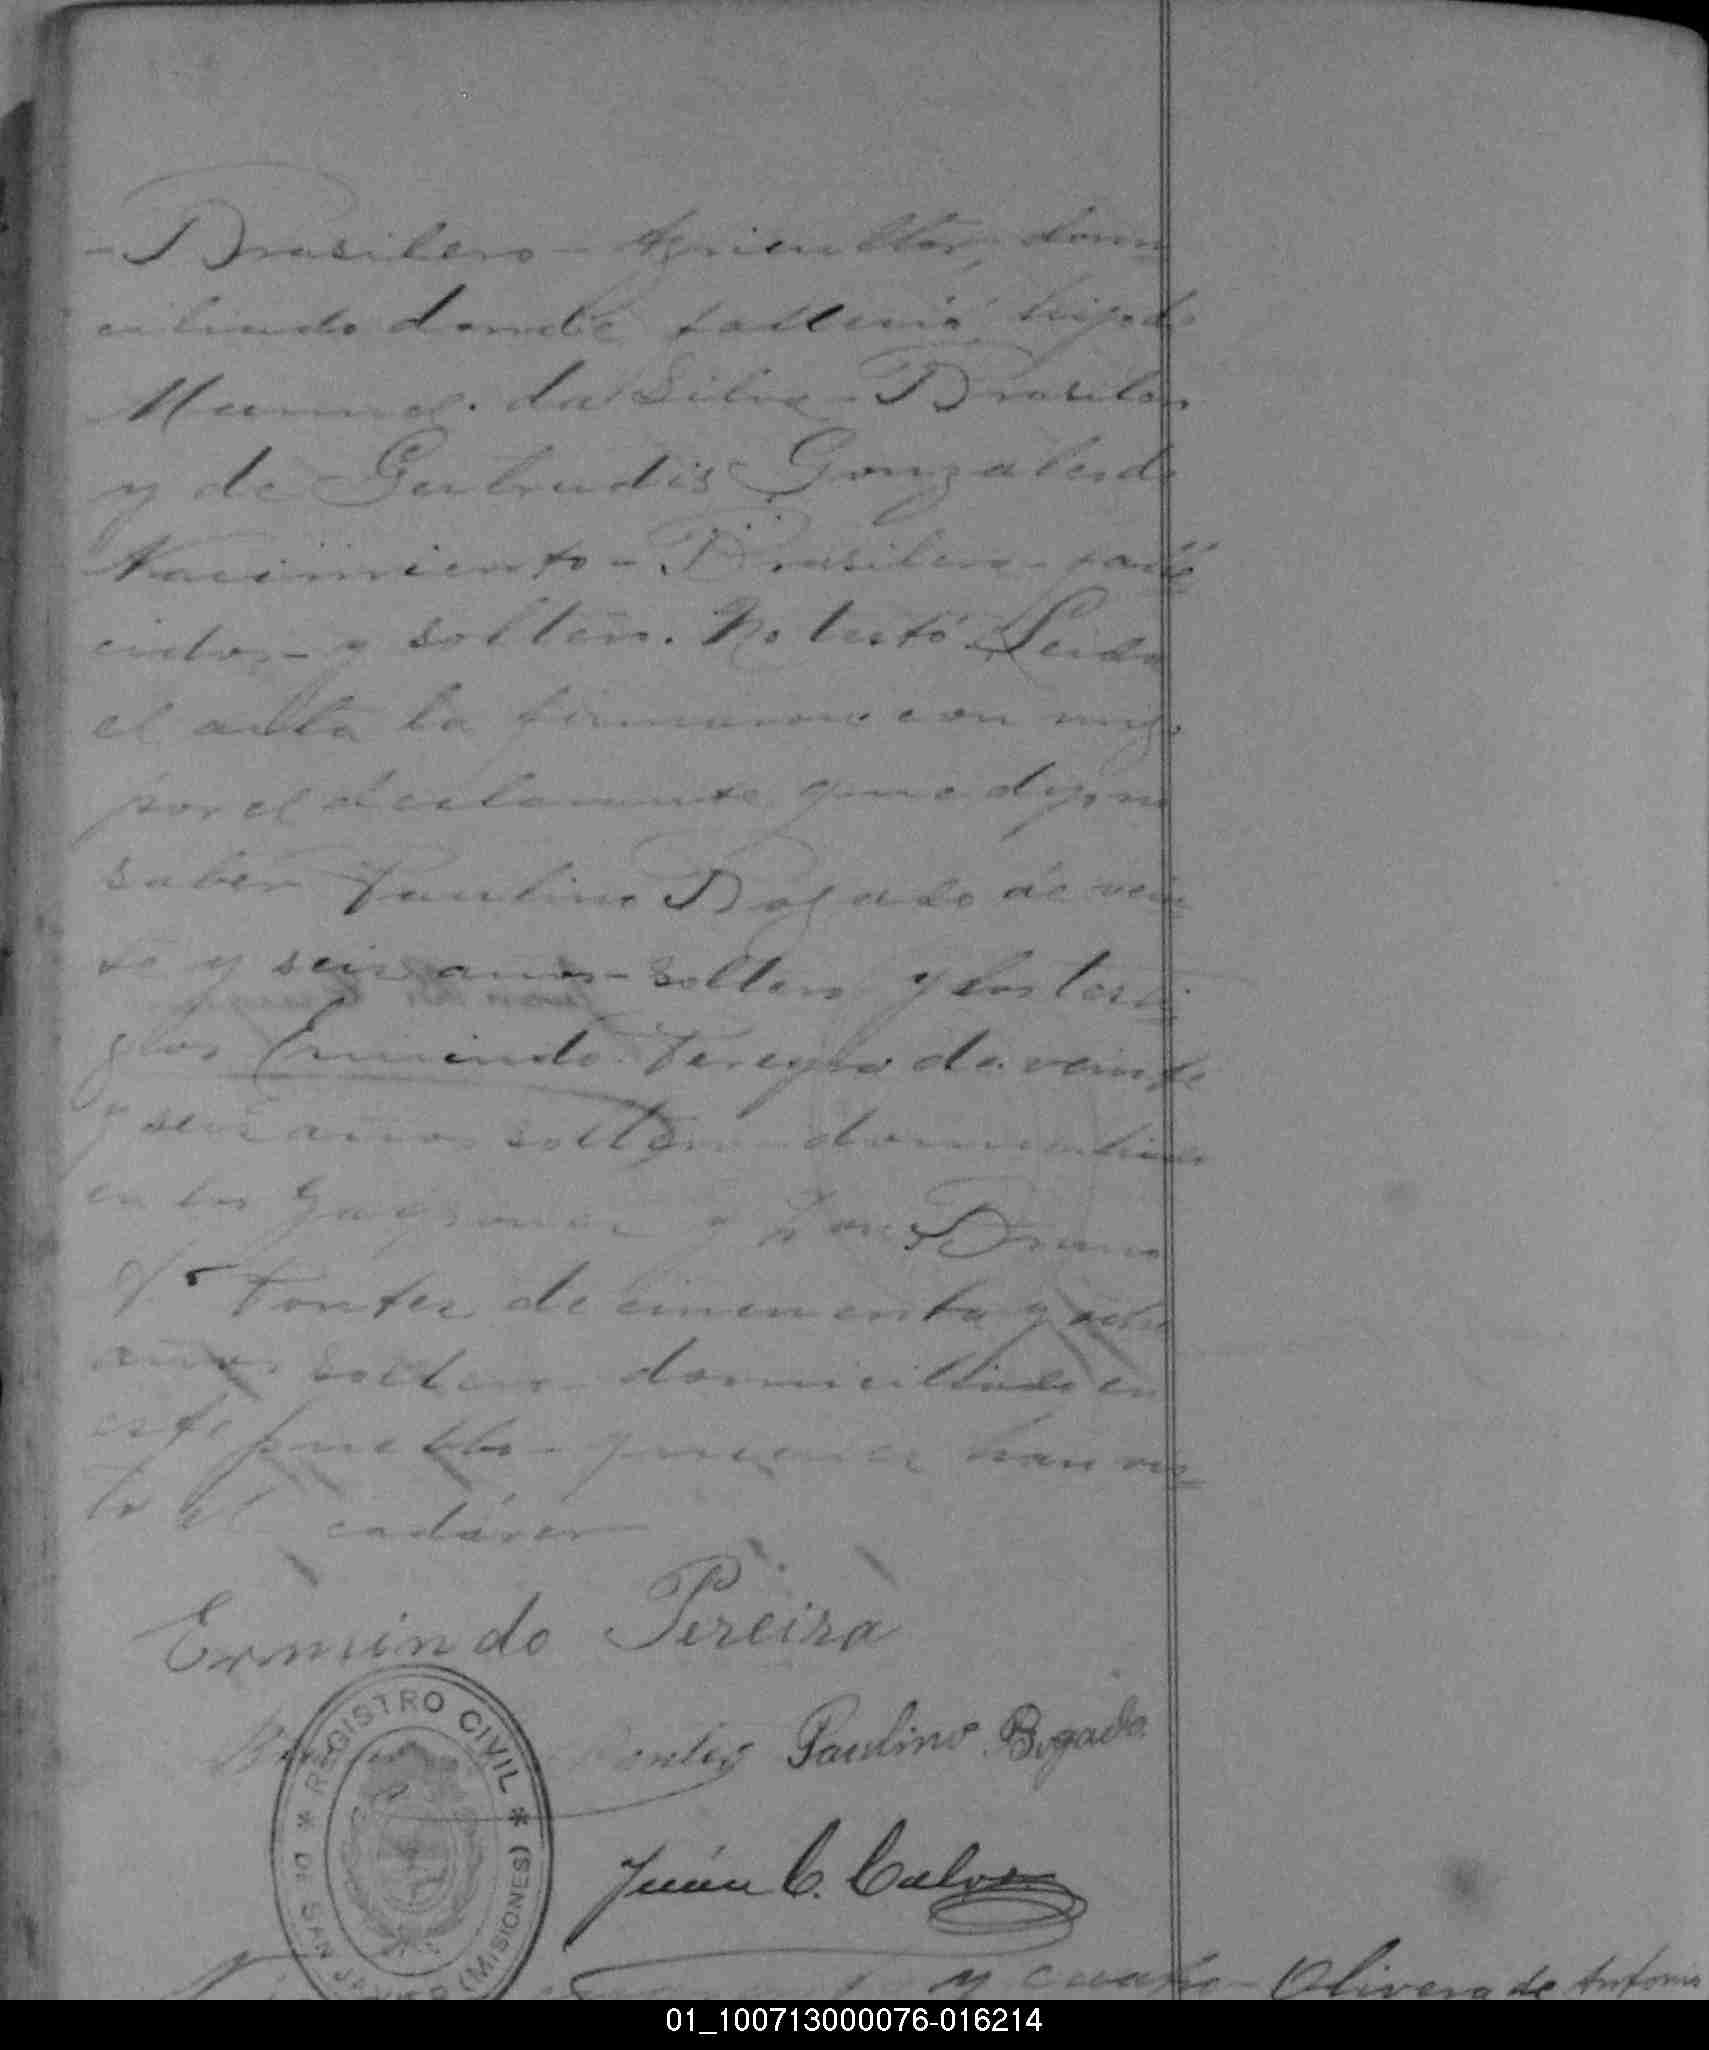 - Brasilero - Agricultor, domi
ciliado donde falleció, hijo de
Manuel da Silva - Brasilero
y de Gertrudis Gonzales do
Nacimiento - Brasilera - falle
cidos - y soltero. No testó. Leida
el acta la firmaron con migo
por el declarante que dijo no
saber Paulino Bogado de vein
te y seis años - soltero y los testi
gos Ermindo Pereyra de veinte
y seis años soltero - domiciliado
en los y Don Bruno
Fontes de cincuenta y ocho
años soltero domiciliado en
este pueblo - quienes han vis
to el cadáver
Ermindo Pereira
Paulino Bogado
Juan C. Calvo
* REGISTRO CIVIL *
DE SAN JAVIER (MISIONES)
y cuatro - Olivera de Antonio
01_100713000076-016214